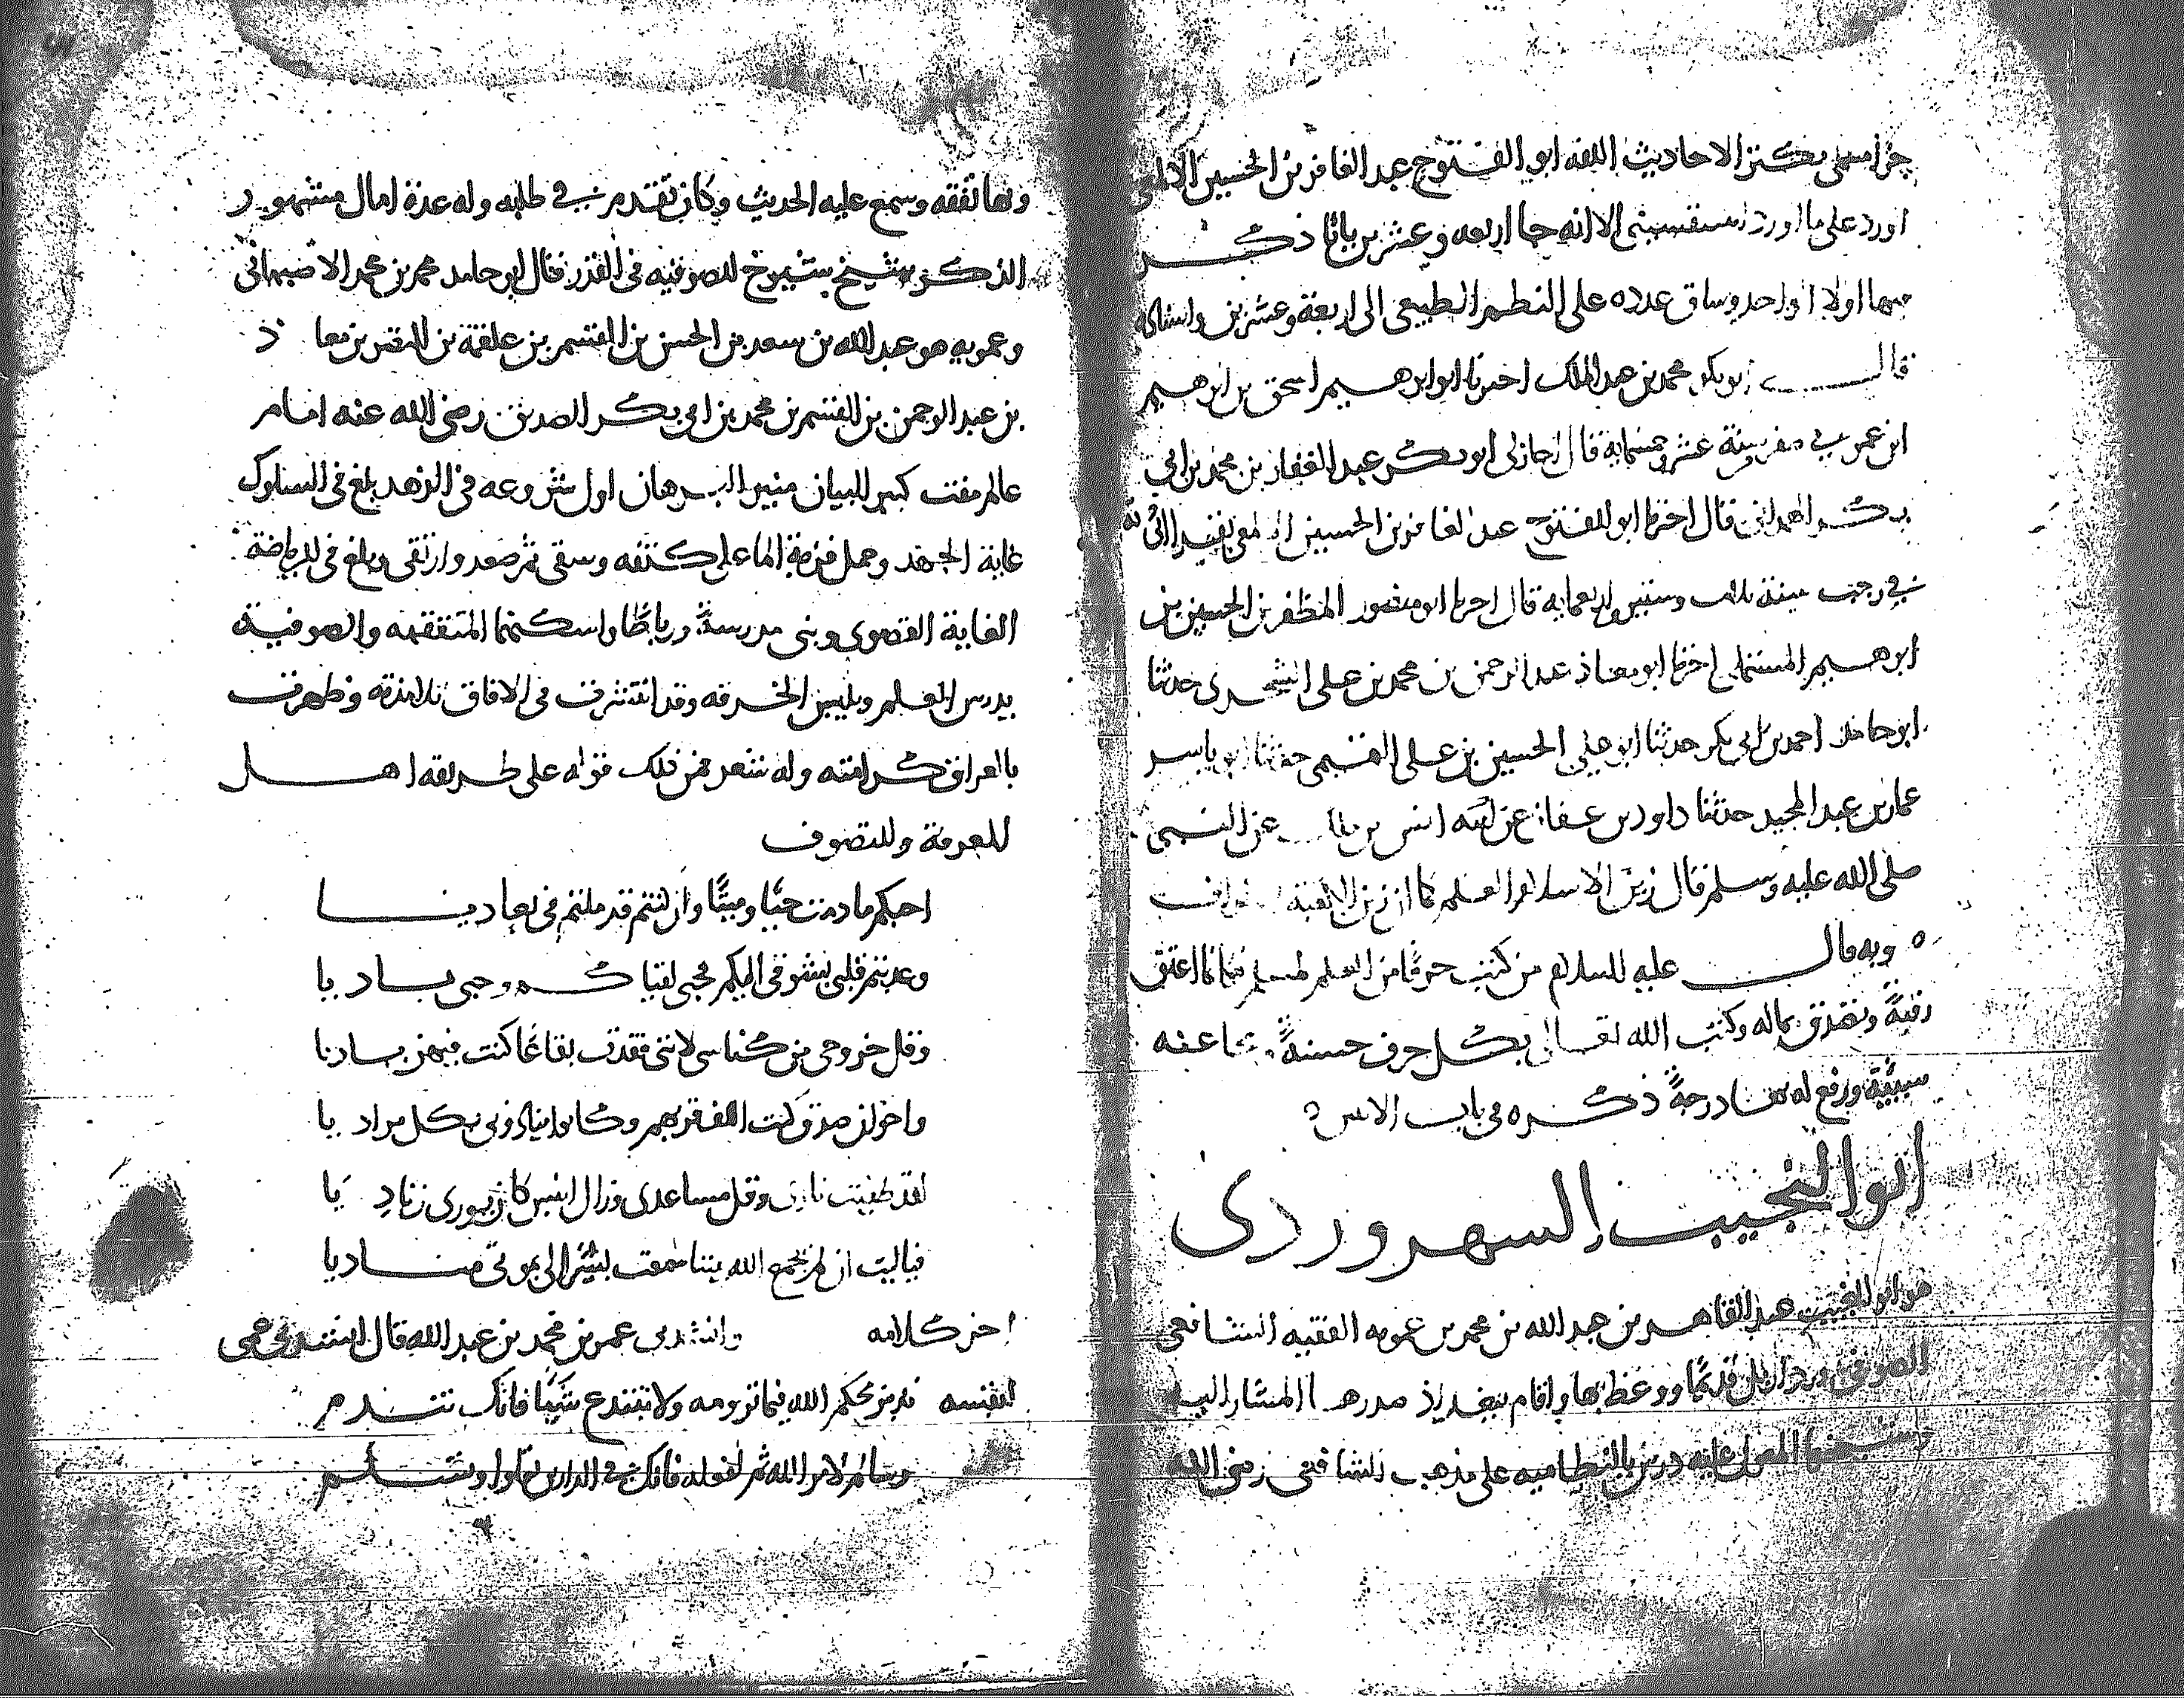 جزءا سمى بكنز الاحاديث الفه ابو الفتوح عبد الغافر بن الحسين الالمعي
اورد على ما اورد الا انه جا اربعه وعشرين بابا ذكر
اولا وساق عدده على النظم الطبيعي الى اربعة وعشرين
قال ابو بكر محمد بن عبد الملك اخبرنا ابو ابرهيم اسحق بن ابرهيم
ابن عمر في صفر سنة عشر وخمسماية قال اجاز لي ابو بكر عبد الغفار بن محمد بن ابي
بكر الهمداني قال اخبرنا ابو الفتوح عبد الغافر بن الحسين
في رجب سنة ثلاث وستين واربعمايه قال اخبرنا ابو منصور المظفر بن الحسين بن
ابرهيم اخبرنا ابو معاذ عبد الرحمن بن محمد بن علي حدثنا
ابو حامد احمد بن ابي بكر حدثنا ابو علي الحسين بن علي حدثنا ابو ياسر
عمار بن عبد المجيد حدثنا داود بن عفان عن انس بن مالك عن النبي
صلى الله عليه وسلم قال زين الاسلام العلم كما ان زين
وبه قال عليه السلام من كتب حرفا من العلم لمسلم فكانما اعتق
رقبة وتصدق بماله وكتب الله تعالى بكل حرف حسنة ومحا عنه
سيئة ورفع له بها درجة ذكره في باب
ابو النجيب السهروردى
هو ابو النجيب عبد القاهر بن عبد الله بن محمد بن عمويه الفقيه الشافعي
الصوفي ورد اربل قديما ووعظ بها واقام ببغداد مدرسها المشار اليه
المعول عليه درس بالنظاميه على مذهب الشافعي رضي الله
وبها تفقه وسمع عليه الحديث وكان تقدم في طلبه وله عدة امال مشهور
الذكر شيخ شيوخ الصوفيه في القدر قال ابو حامد محمد بن محمد الاصبهاني
وعمويه هو عبد الله بن سعد بن الحسن بن القسم بن علقمة بن النضر بن معا ذ
بن عبد الرحمن بن القسم بن محمد بن ابي بكر الصديق رضي الله عنه امام
عالم مفت كبير البيان منير البرهان اول شروعه في الزهد بلغ في السلوك
غاية الجهد وحمل قربة الما على كتفه وسقى ثم صعد وارتقى وبلغ في الرياضة
الغاية القصوى وبنى مدرسة ورباطا واسكنهما المتفقهه والصوفية
يدرس العلم ويلبس الخرقه وقد انتشرت في الافاق تلامذته وظهرت
بالعراق كرامته وله شعر فمن ذلك قوله على طريقه اهل
المعرفة والتصوف
احبكم ما دمت حيا وميتا وان كنتم قد ملتم في بعاديا
وعذبتم قلبي بشوقي اليكم فحبي لقياكم وحبي باديا
وقل خروجي من كناسي لانني فقدت بقاعا كنت فيهن باديا
واخوان صدق كنت الف قربهم وكانوا ينادوني بكل مراديا
لقد طفيت ناري وقل مساعدي وزال انيس كان يوري زناديا
فياليت ان لم يجمع الله بيننا سمعت بشيرا لي بموتي مناديا
اخر كلامه وانشدني عمر بن محمد بن عبد الله قال انشدني عمي
لنفسه تدين بحكم الله فيما ترومه ولا تبتدع شيا فانك تندم
وسلم لامر الله ثم لفعله فانك في الدارين تعلوا وتسلم